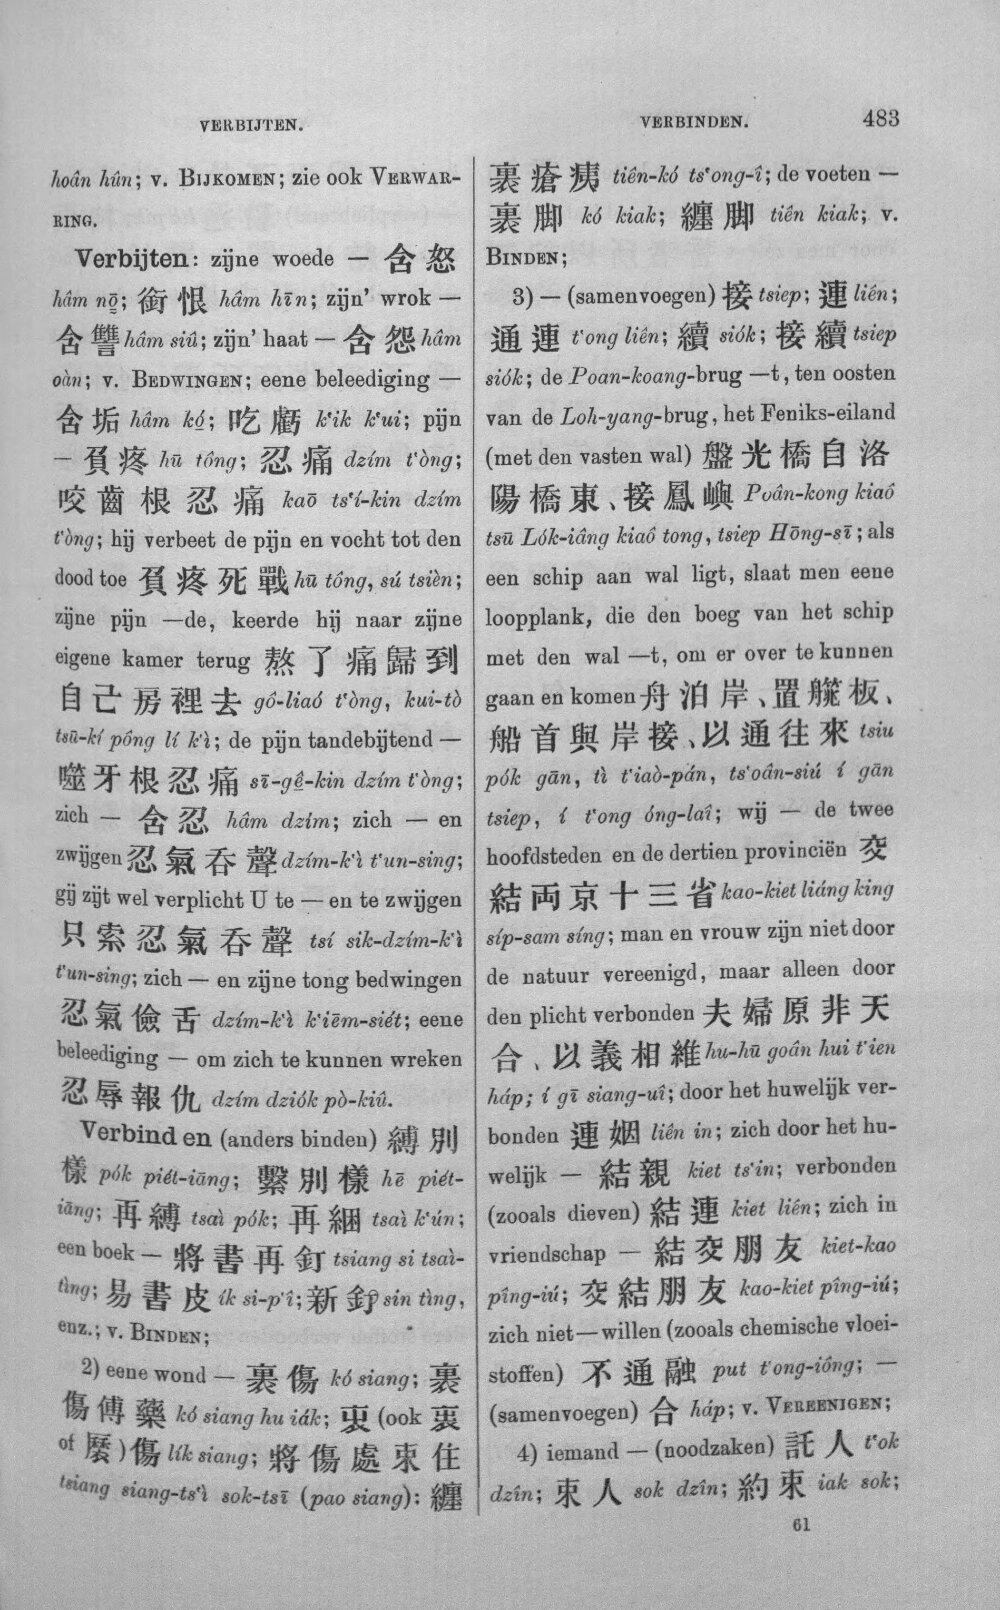 VERBIJTEN.
VERBINDEN.
483
hoân hûn; v. BIJKOMEN; zie ook VERWAR-
RING.
Verbijten: zijne woede — 含怒
hâm nō; 銜恨 hâm hīn; zijn' wrok —
含讐 hâm siû; zijn' haat — 含怨 hâm
oàn; v. BEDWINGEN; eene beleediging —
含垢 hâm kó; 吃虧 k'ik k'ui; pijn
— 負疼 hū tông; 忍痛 dzím t'òng;
咬齒根忍痛 kaō ts'í-kin dzím
t'òng; hij verbeet de pijn en vocht tot den
dood toe 負疼死戰 hū tông, sú tsièn;
zijne pijn —de, keerde hij naar zijne
eigene kamer terug 熬了痛歸到
自己房裡去 gô-liaó t'òng, kui-tò
tsū-kí pông lí k'ì; de pijn tandebijtend —
噬牙根忍痛 sī-gê-kin dzím t'òng;
zich — 含忍 hâm dzím; zich — en
zwijgen 忍氣呑聲 dzím-k'ì t'un-sing;
gij zijt wel verplicht U te — en te zwijgen
只索忍氣呑聲 tsí sik-dzím-k'ì
t'un-sing; zich — en zijne tong bedwingen
忍氣儉舌 dzím-k'ì k'iēm-siét; eene
beleediging — om zich te kunnen wreken
忍辱報仇 dzím dziók pò-kiû.
Verbinden (anders binden) 縛別
樣 pók piét-iāng; 繫別樣 hē piét-
iāng; 再縛 tsaì pók; 再綑 tsaì k'ún;
een boek — 將書再釘 tsiang si tsaì-
tìng; 易書皮 ík si-p'î; 新釘 sin tìng,
enz.; v. BINDEN;
2) eene wond — 裹傷 kó siang; 裹
傷傅藥 kó siang hu iák; (ook
of ) 傷 lík siang; 將傷處束住
tsiang siang-ts'ì sok-tsī (pao siang): 纏
裹瘡痍 tiên-kó ts'ong-î; de voeten —
裹脚 kó kiak; 纏脚 tiên kiak; v.
BINDEN;
3) — (samenvoegen) 接 tsiep; 連 liên;
通連 t'ong liên; 續 siók; 接續 tsiep
siók; de Poan-koang-brug —t, ten oosten
van de Loh-yang-brug, het Feniks-eiland
(met den vasten wal) 盤光橋自洛
陽橋東、接鳳嶼 Poân-kong kiaô
tsū Lók-iâng kiaô tong, tsiep Hōng-sī; als
een schip aan wal ligt, slaat men eene
loopplank, die den boeg van het schip
met den wal —t, om er over te kunnen
gaan en komen 舟泊岸、置艞板、
船首與岸接、以通往來 tsiu
pók gān, tì t'iaò-pán, ts'oân-siú í gān
tsiep, í t'ong óng-laî; wij — de twee
hoofdsteden en de dertien provinciën 交
結両京十三省 kao-kiet liáng king
síp-sam síng; man en vrouw zijn niet door
de natuur vereenigd, maar alleen door
den plicht verbonden 夫婦原非天
合、以義相維 hu-hū goân hui t'ien
háp; í gī siang-uî; door het huwelijk ver-
bonden 連姻 liên in; zich door het hu-
welijk — 結親 kiet ts'in; verbonden
(zooals dieven) 結連 kiet liên; zich in
vriendschap — 結交朋友 kiet-kao
pîng-iú; 交結朋友 kao-kiet pîng-iú;
zich niet—willen (zooals chemische vloei-
stoffen) 不通融 put t'ong-iông; —
(samenvoegen) 合 háp; v. VEREENIGEN;
4) iemand — (noodzaken) 託人 t'ok
dzîn; 束人 sok dzîn; 約束 iak sok;
61